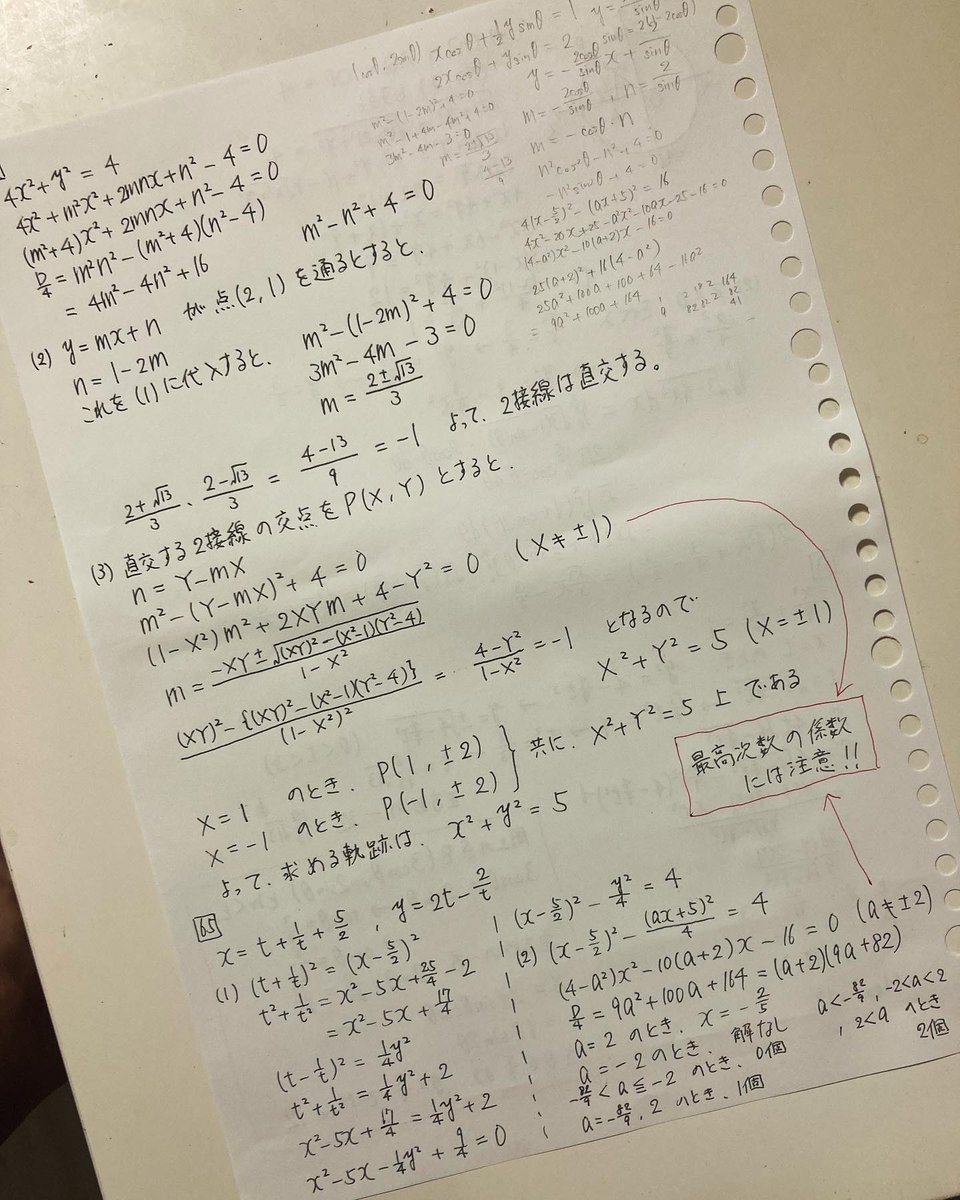 4x² + y² = 4
4x² + m²x² + 2mnx + n² - 4 = 0
(m²+4)x² + 2mnx + n² - 4 = 0
D/4 = m²n² - (m²+4)(n²-4)
= 4m² - 4n² + 16
m² - n² + 4 = 0
(2) y = mx + n が 点(2, 1) を通るとすると、
n = 1 - 2m
これを (1) に代入すると、
m² - (1-2m)² + 4 = 0
3m² - 4m - 3 = 0
m = (2±√13)/3
(2+√13)/3 · (2-√13)/3 = (4-13)/9 = -1 よって、2接線は直交する。
(3) 直交する2接線の交点をP(X, Y) とすると、
n = Y - mX
m² - (Y-mX)² + 4 = 0
(1-X²)m² + 2XYm + 4 - Y² = 0 (X≠±1)
m = (-XY±√((XY)²-(X²-1)(Y²-4)))/(1-X²)
((XY)²-{(XY)²-(X²-1)(Y²-4)})/(1-X²)² = (4-Y²)/(1-X²) = -1 となるので
X² + Y² = 5 (X=±1)
X = 1 のとき、P(1, ±2)
X = -1 のとき、P(-1, ±2)
共に、X² + Y² = 5 上 である
よって、求める軌跡は、x² + y² = 5
最高次数の係数
には注意!!
65
x = t + 1/t + 5/2 , y = 2t - 2/t
(1) (t+1/t)² = (x-5/2)²
t² + 1/t² = x² - 5x + 25/4 - 2
= x² - 5x + 17/4
(t-1/t)² = 1/4y²
t² + 1/t² = 1/4y² + 2
x² - 5x + 17/4 = 1/4y² + 2
x² - 5x - 1/4y² + 9/4 = 0
(x-5/2)² - y²/4 = 4
(2) (x-5/2)² - (ax+5)²/4 = 4
(4-a²)x² - 10(a+2)x - 16 = 0 (a≠±2)
D/4 = 9a² + 100a + 164 = (a+2)(9a+82)
a = 2 のとき、x = -2/5
a = -2 のとき、解なし
-82/9 < a ≦ -2 のとき、0個
a = -82/9, 2 のとき、1個
a < -82/9, -2 < a < 2
, 2 < a のとき
2個
2xcosθ + ysinθ = 2
m² - (1-2m)² + 4 = 0
m² - 1 + 4m - 4m² + 4 = 0
3m² - 4m - 3 = 0
m = (2±√13)/3
(4-13)/9
m = -2cosθ/sinθ , n = 2/sinθ
m = -cosθ · n
n²cos²θ - n² + 4 = 0
-n²sin²θ + 4 = 0
4(x-5/2)² - (ax+5)² = 16
4x² - 20x + 25 - a²x² - 10ax - 25 - 16 = 0
(4-a²)x² - 10(a+2)x - 16 = 0
25(a+2)² + 16(4-a²)
25a² + 100a + 100 + 64 - 16a²
= 9a² + 100a + 164